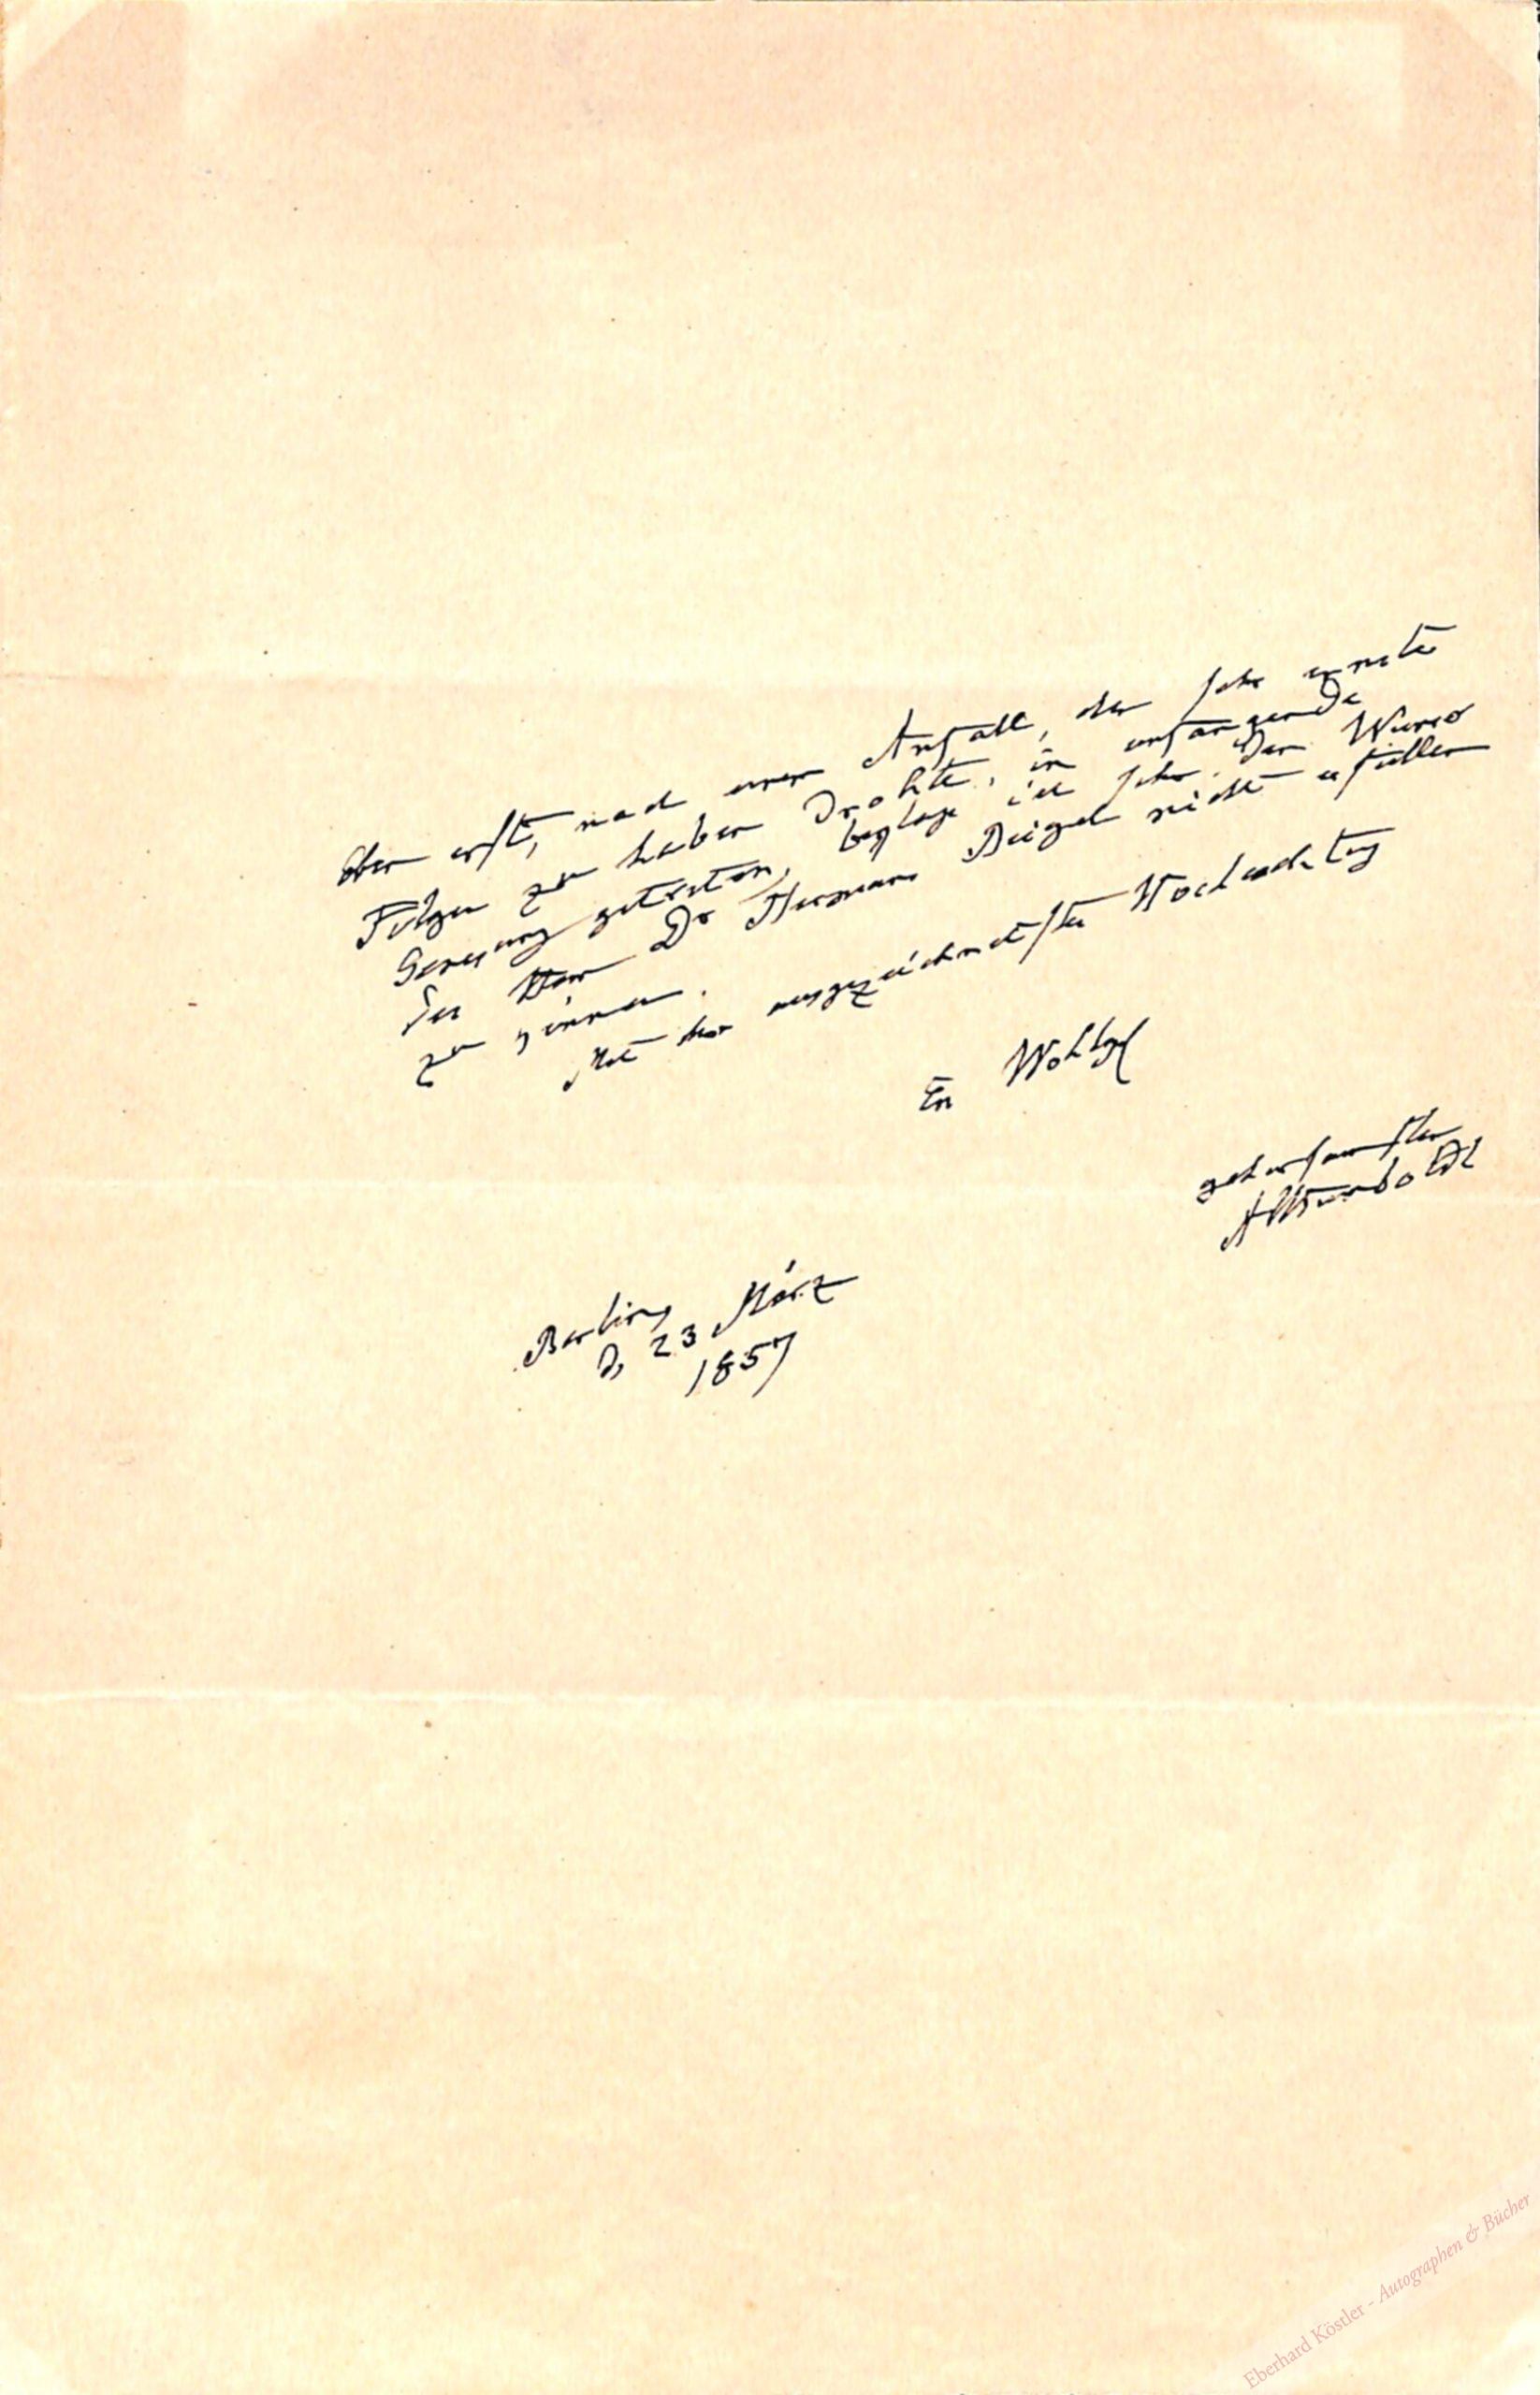 Eben erst, nach einem Anfall, der sehr ernste
Folgen zu haben drohte, in anfangende
Genesung getreten, beklage ich sehr den Wunsch
des Herrn Dr Hermann Beigel nicht erfüllen
zu können.
Mit der ausgezeichnetsten Hochachtung
Ew Wohlgb
gehorsamster
AHumboldt
Berlin,
d, 23 März
1857
Eberhard Köstler - Autographen & Bücher